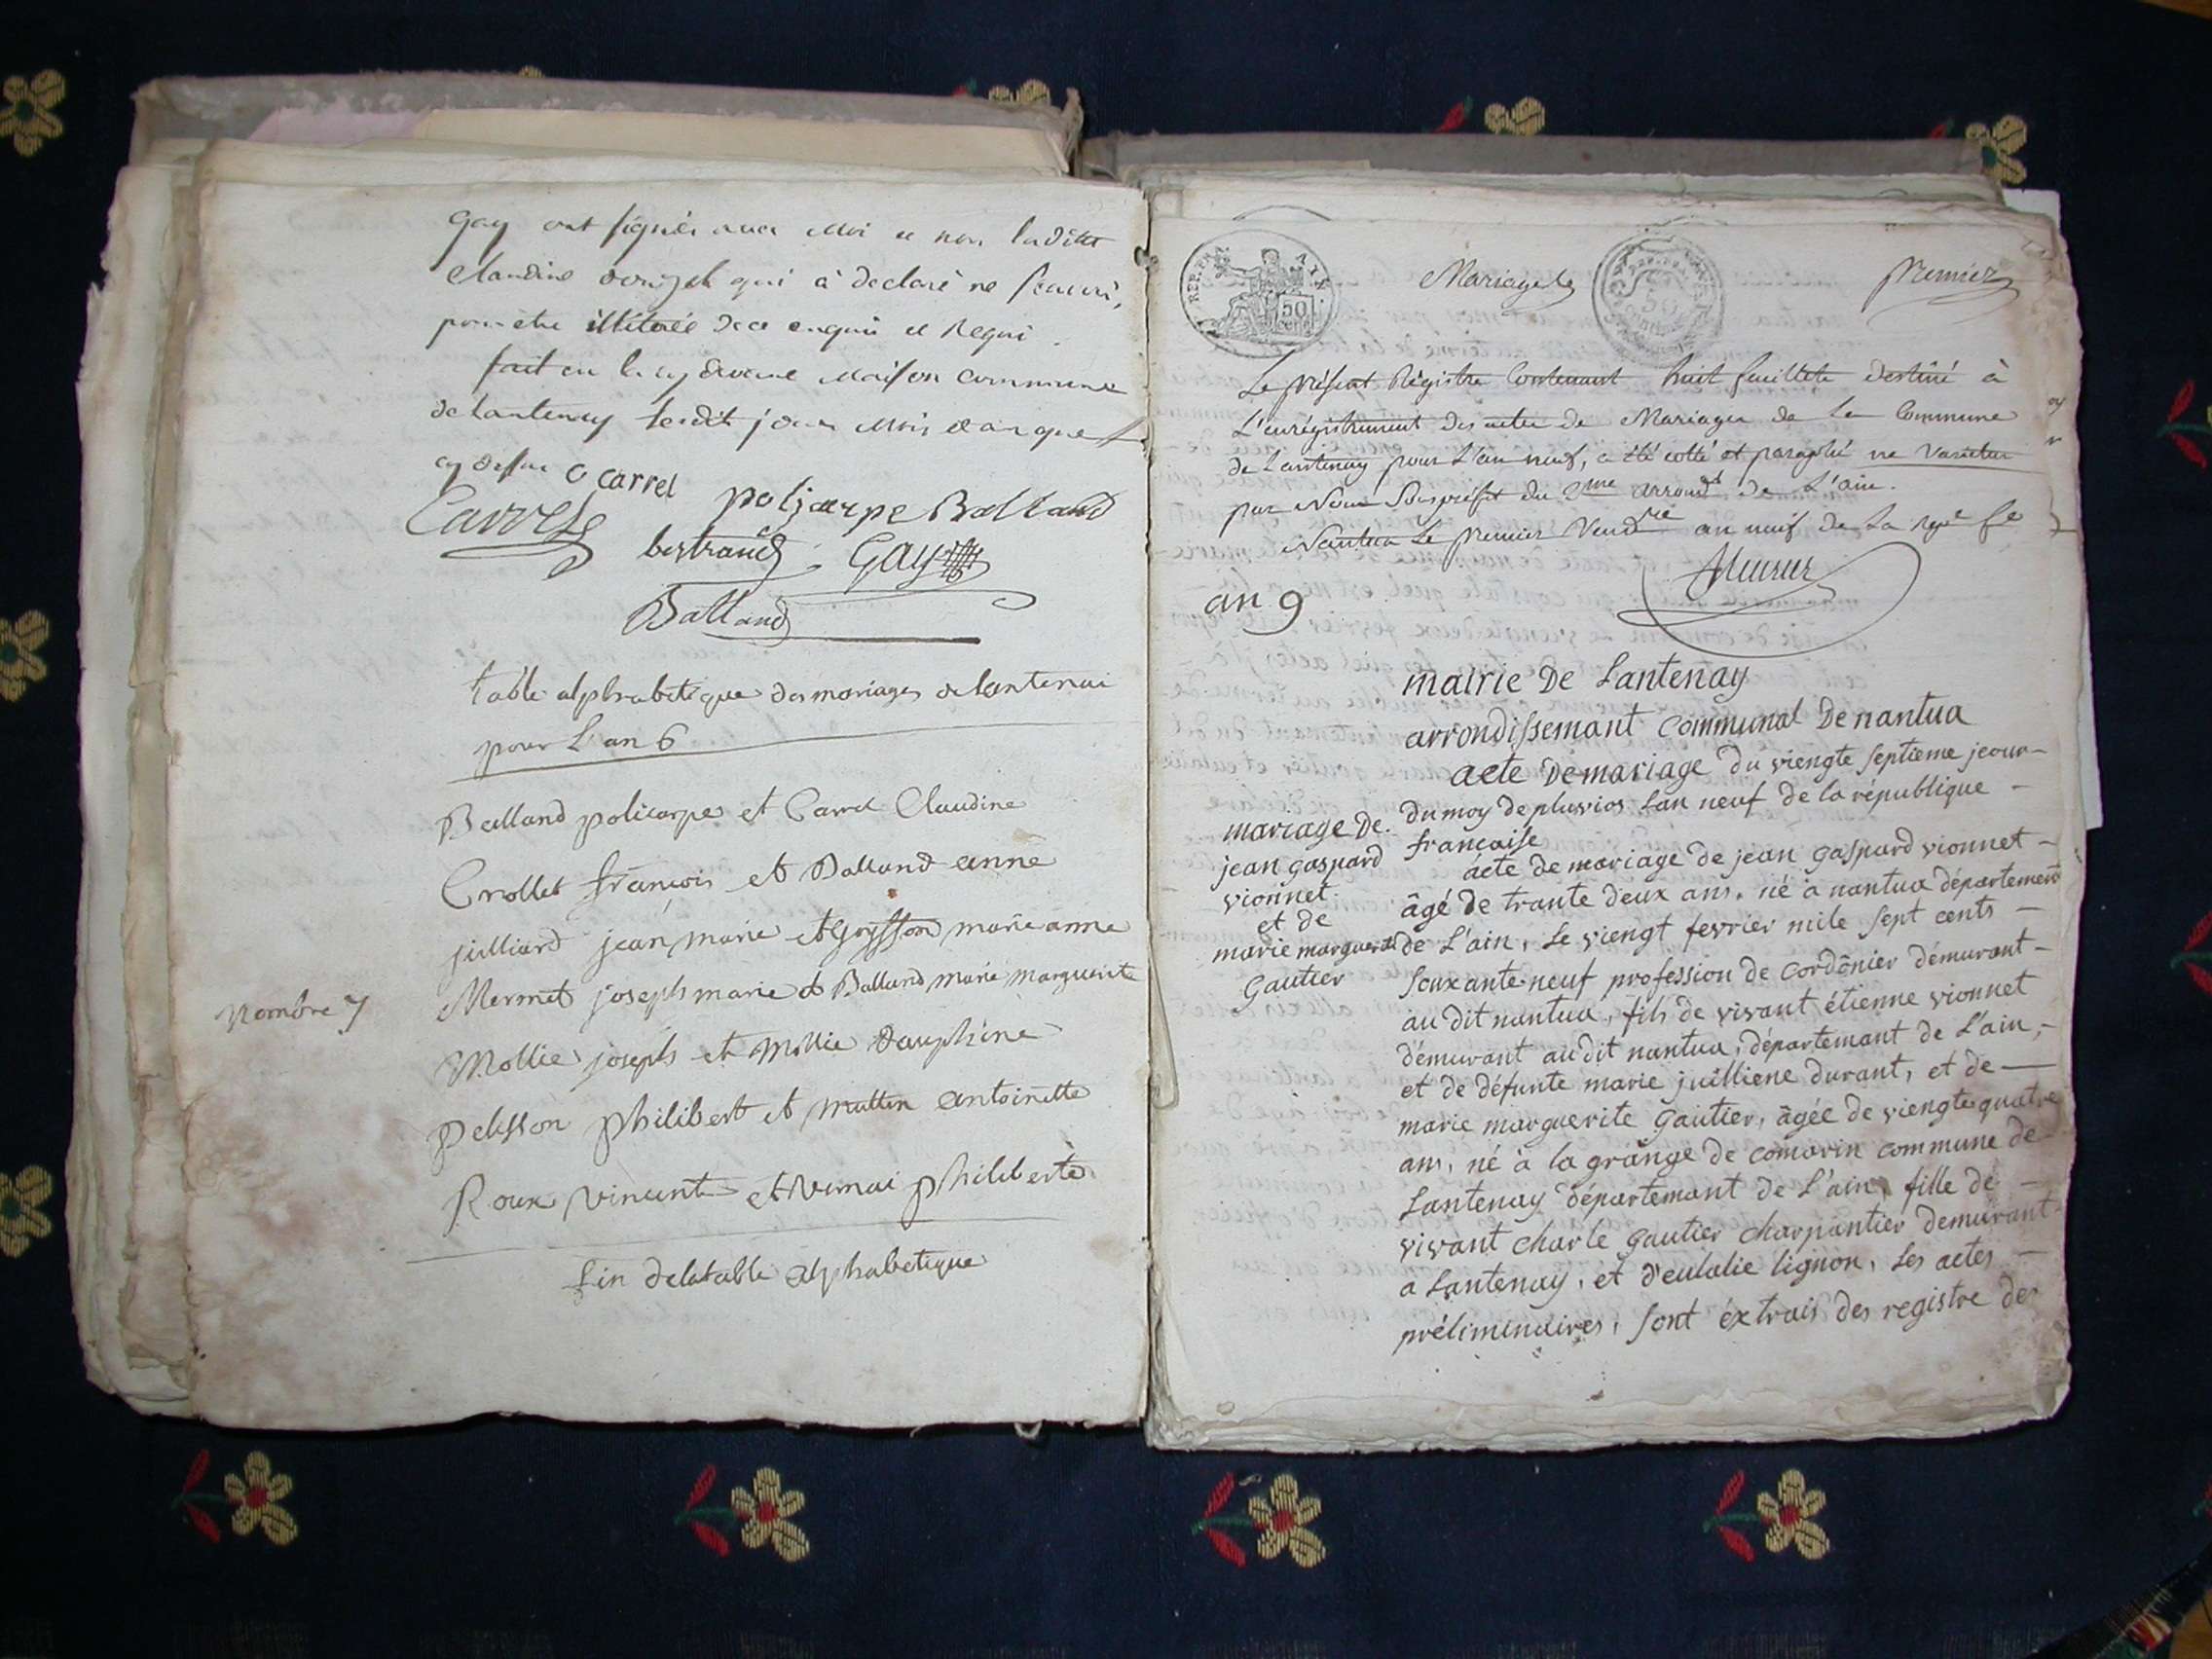 Gay ont signés avec Moi et non laditte
Claudine qui à declaré ne scavoir,
pour être illiterée de ce enquis et Requi.
fait en la cy devant Maison commune
de Lantenay lesdit jour Mois et an que
cy dessus C Carrel
Carrel policarpe Balland
bertrand GAY
Balland
table alphabetique des mariages de lantenai
pour L'an 6
Balland policarpe et Carrel Claudine
Crollet françois et Balland anne
julliard jean marie et marie anne
Nombre 7
Mermet joseph marie et Balland marie marguerite
Mollie joseph et Mollie dauphine
pelisson philibert et antoinette
Roux vincent et philiberte
fin de la table alphabetique
REP. FRA.
AIN
50
cent
Mariages
50
premier
Le présent Régistre Contenant huit feuillets destiné à
L'enrégistrement des actes de Mariages de La Commune
de Lantenay pour L'an neuf, a été cotté et paraphé ne varietur
par Nous Souspréfet du 2me arrondt de L'ain.
Nantua Le premier Vendre an neuf de La
an 9
mairie De Lantenay
arrondissemant Communal De nantua
acte De mariage Du viengte septieme jeour-
du moy de pluvios Lan neuf de la république -
française
mariage De.
jean gaspard
vionnet
et de
marie marguerite
Gautier
acte de mariage de jean gaspard vionnet -
âgé de trante deux ans, né a nantua département
de L'ain, Le viengt fevrier mile sept cents -
souxante neuf profession de cordônier démurant -
au dit nantua, fils de vivant étienne vionnet
démurant audit nantua, départemant de L'ain,-
et de défunte marie juilliene durant, et de -
marie marguerite Gautier, âgée de viengte quatre
ans, né à la grange de comarin commune de
Lantenay départemant de L'ain, fille de -
vivant charle gautier charpantier demurant
a Lantenay, et d'eulalie lignon, Les actes -
préliminaires, sont éxtrais des registre des